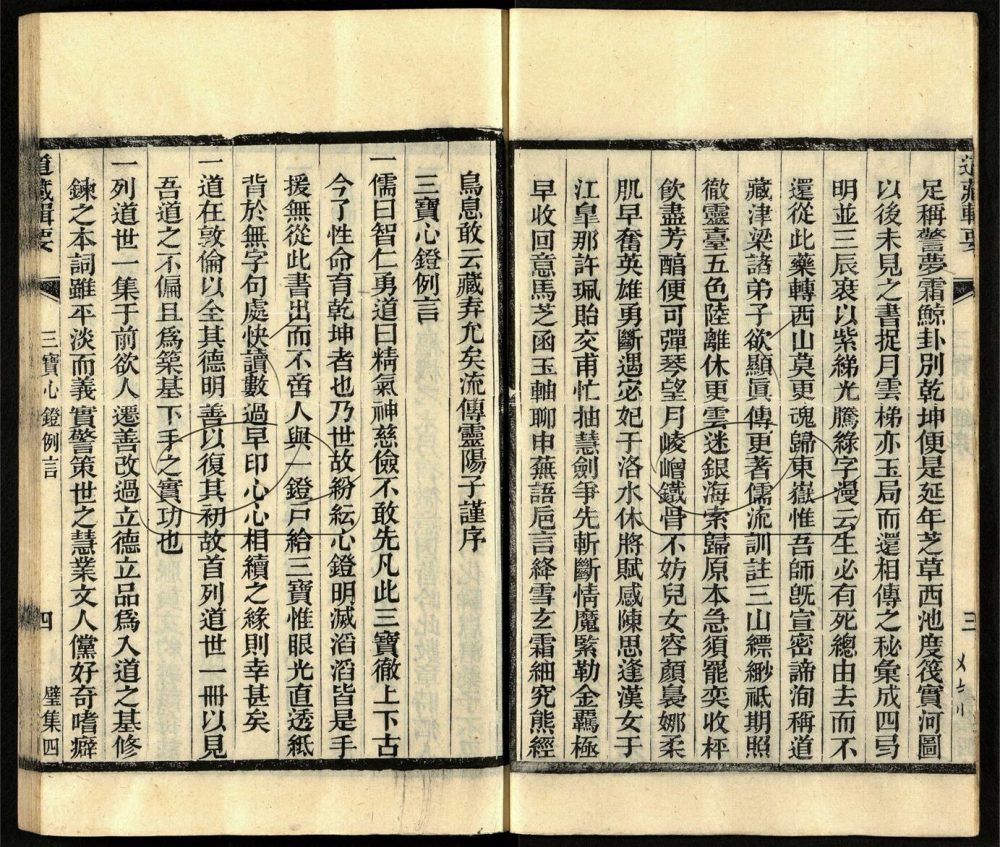 道藏輯要
三
足稱警夢霜鯨卦別乾坤便是延年芝草西池度筏實河圖
以後未見之書捉月雲梯亦玉局而還相傳之秘彙成四弓
明並三辰裦以紫綈光騰綠字漫云生必有死總由去而不
還從此藥轉西山莫更魂歸東嶽惟吾師旣宣密諦洵稱道
藏津梁諸弟子欲顯眞傳更著儒流訓註三山縹緲祇期照
徹靈臺五色陸離休更雲迷銀海索歸原本急須罷奕收枰
飲盡芳醕便可彈琴望月崚嶒鐵骨不妨兒女容顏裊娜柔
肌早奮英雄勇斷遇宓妃于洛水休將賦感陳思逢漢女于
江皐那許珮貽交甫忙抽慧劍爭先斬斷情魔緊勒金羈極
早收回意馬芝函玉軸聊申蕪語巵言絳雪玄霜細究熊經
鳥息敢云藏弆允矣流傳靈陽子謹序
三寶心鐙例言
一儒曰智仁勇道曰精氣神慈儉不敢先凡此三寶徹上下古
今了性命育乾坤者也乃世故紛紜心鐙明滅滔滔皆是手
援無從此書出而不啻人與一鐙戸給三寶惟眼光直透紙
背於無字句處快讀數過早印心心相續之緣則幸甚矣
一道在敦倫以全其德明善以復其初故首列道世一冊以見
吾道之不偏且爲築基下手之實功也
一列道世一集于前欲人遷善改過立德立品爲入道之基修
鍊之本詞雖平淡而義實警策世之慧業文人儻好奇嗜癖
道藏輯要
三寶心鐙例言
四
璧集四